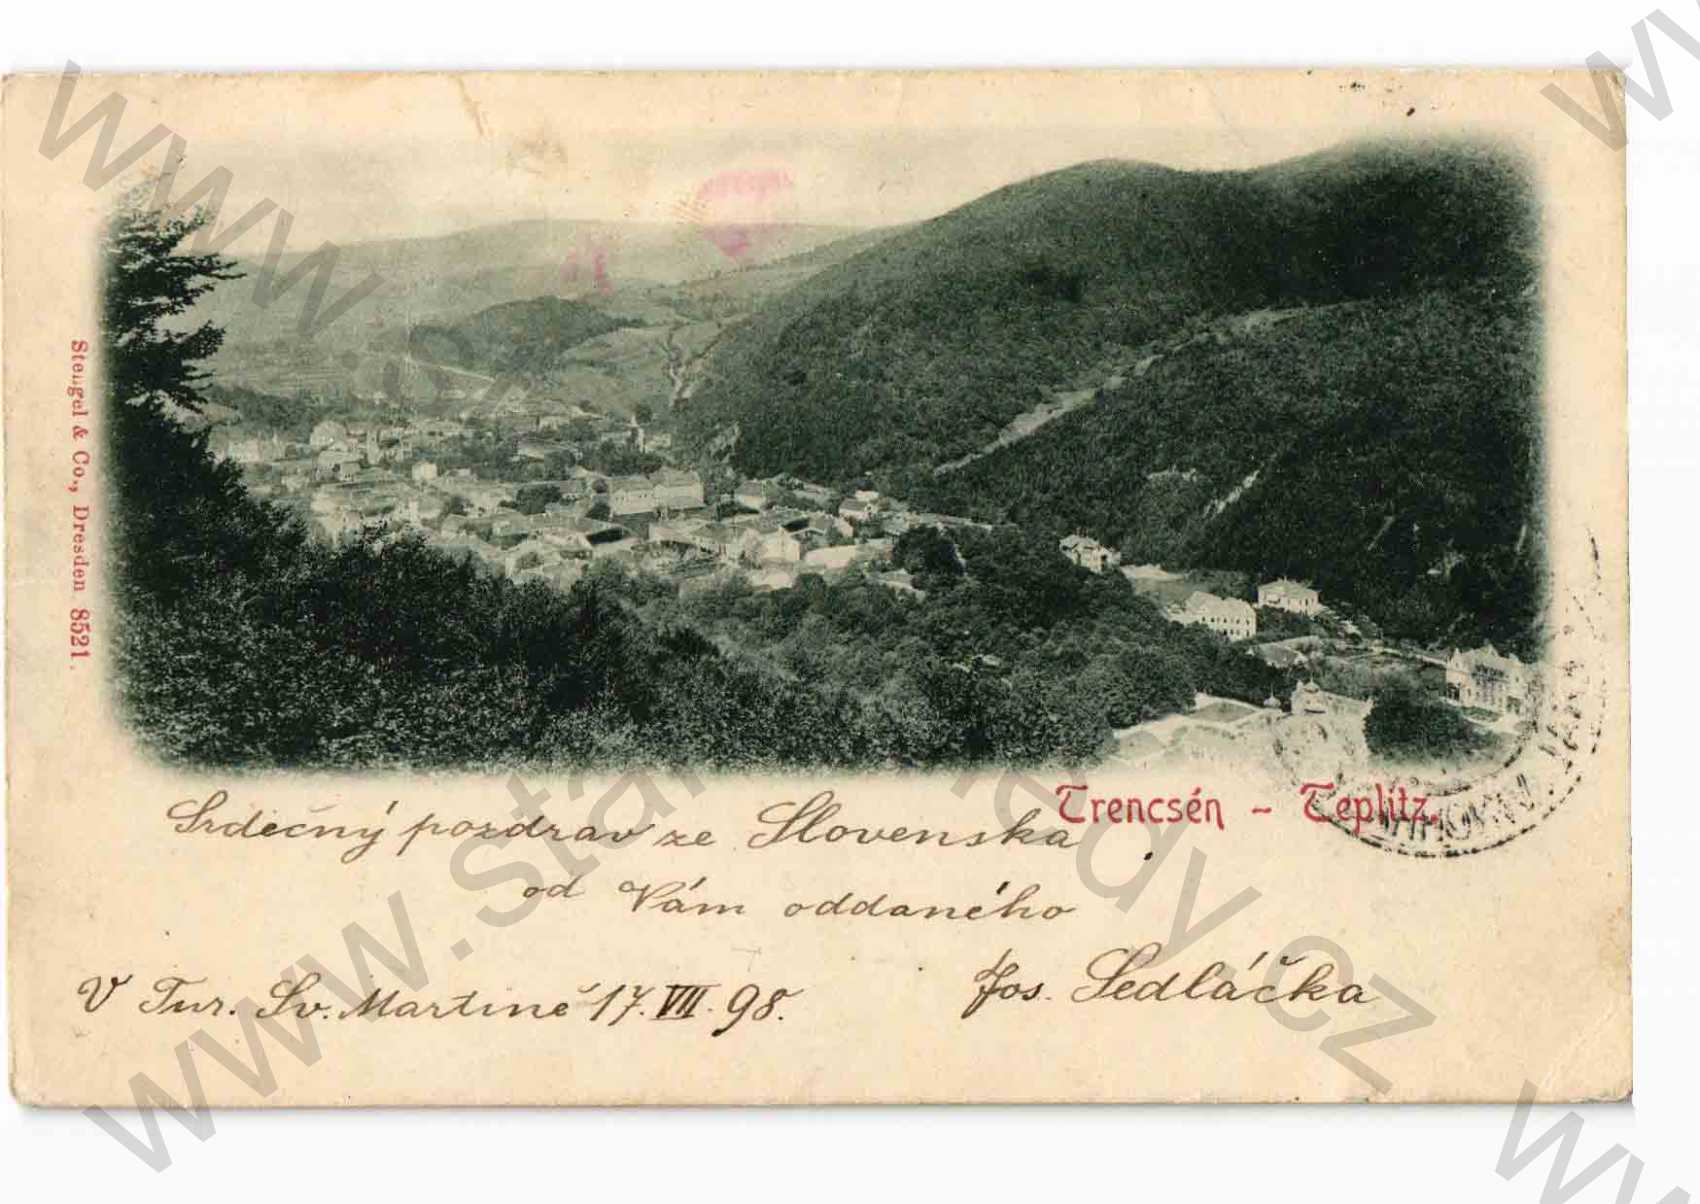 Stengel & Co., Dresden 8521.
Trencsén - Teplitz.
Srdečný pozdrav ze Slovenska
od Vám oddaného
Jos. Sedláčka
V Tur. Sv. Martině 17. VIII. 98.
www.starepohledy.cz